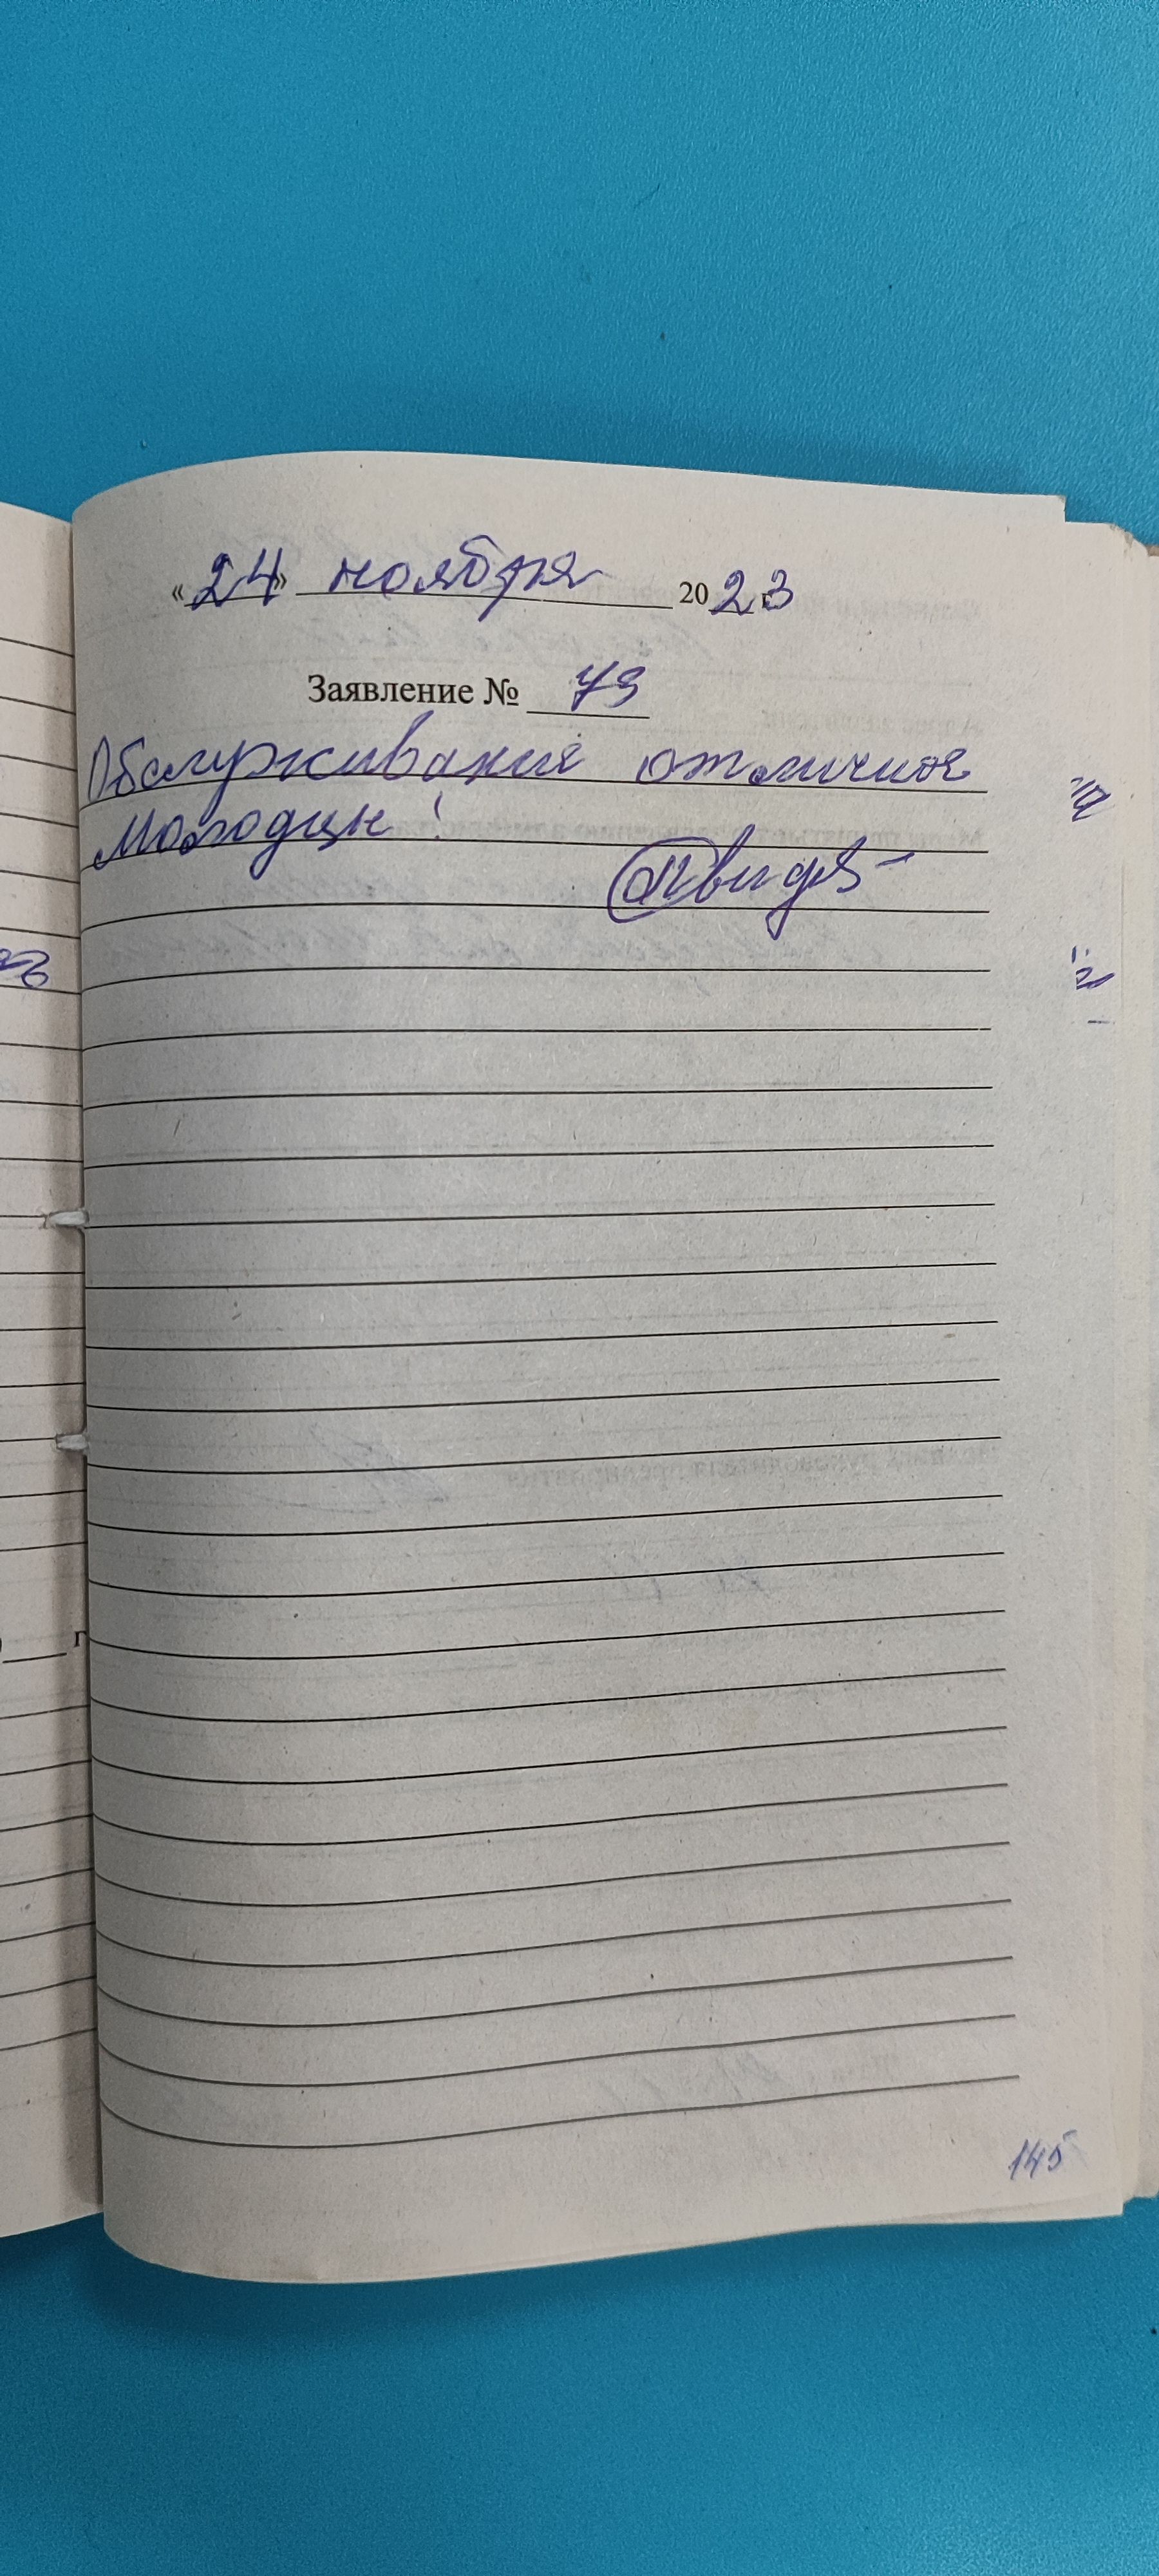 «24» ноября 2023 г.
Заявление № 73
Обслуживания отличное
Молодцы!
145